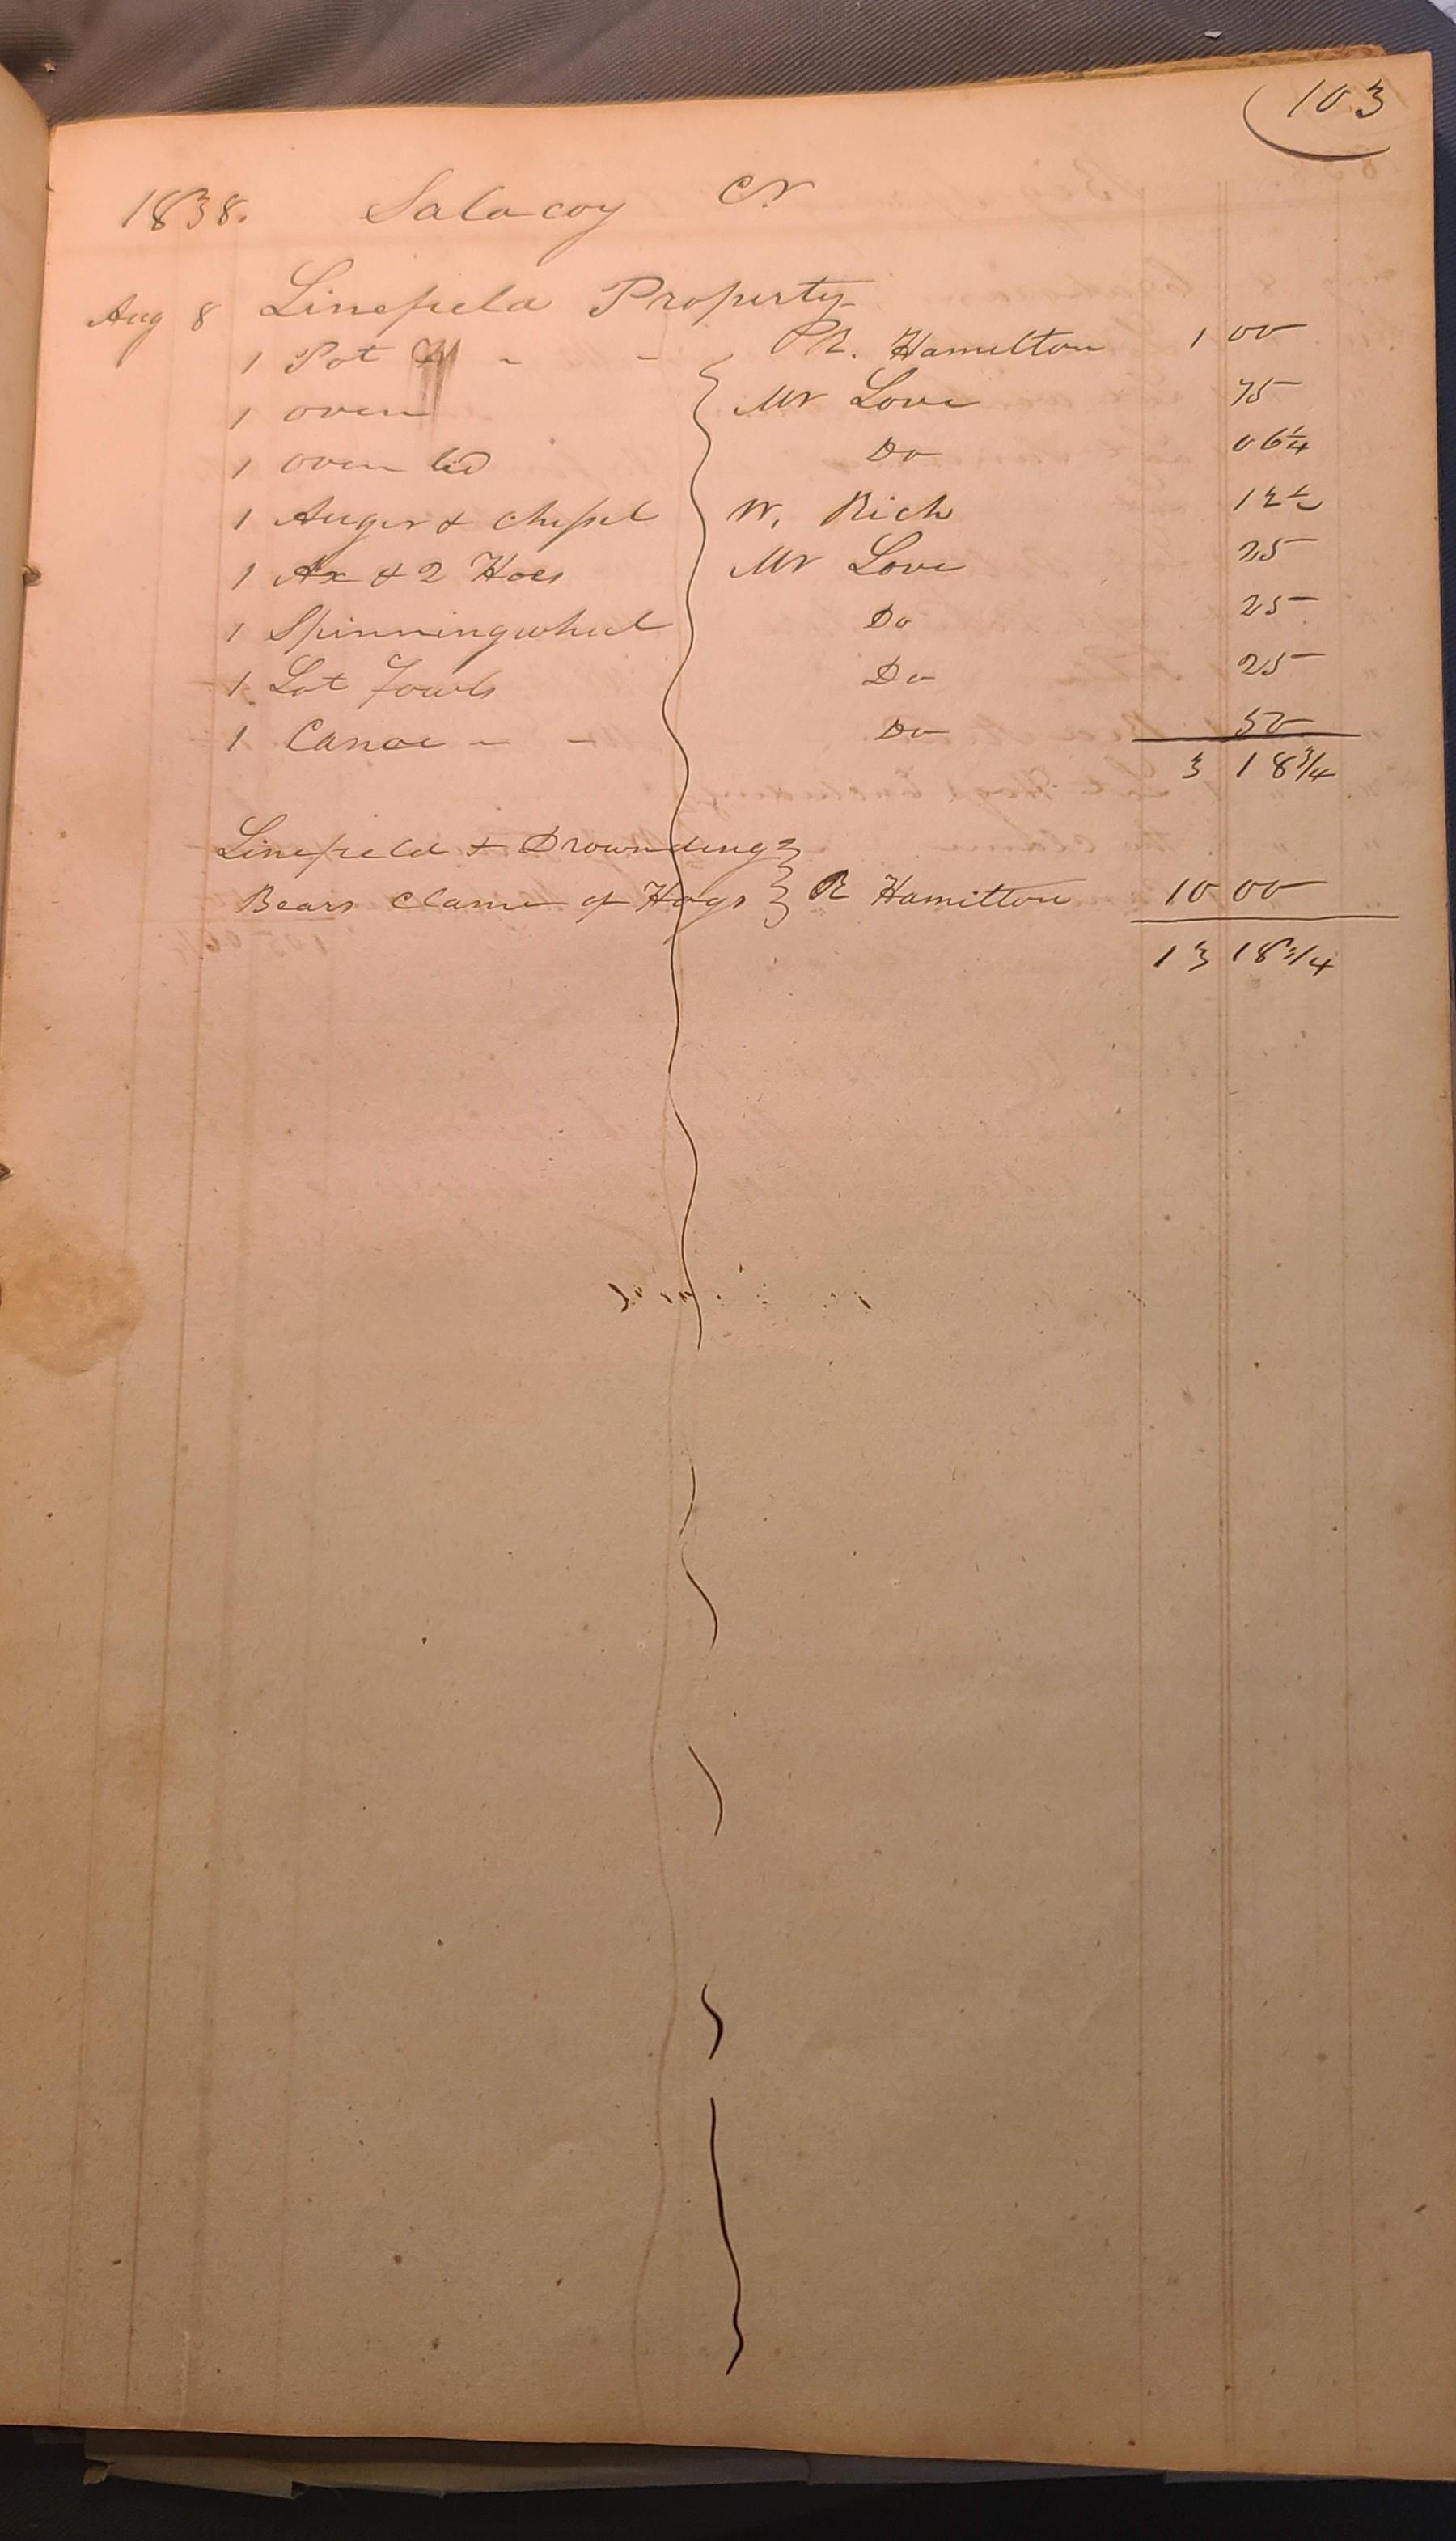 103
1838. Salacoy CN
Aug 8 Linefield Property
1 Pot - - R. Hamilton 1 00
1 oven Mr Love 75
1 oven lid Do 06 1/4
1 Auger & Chissel W. Rich 12 1/2
1 Ax & 2 Hoes Mr Love 25
1 Spinningwheel Do 25
1 Lot Fowls Do 25
1 Canoe - - Do 50
3 18 3/4
Linefield & Drownding
Bears Clame of Hogs R Hamilton 10 00
13 18 3/4